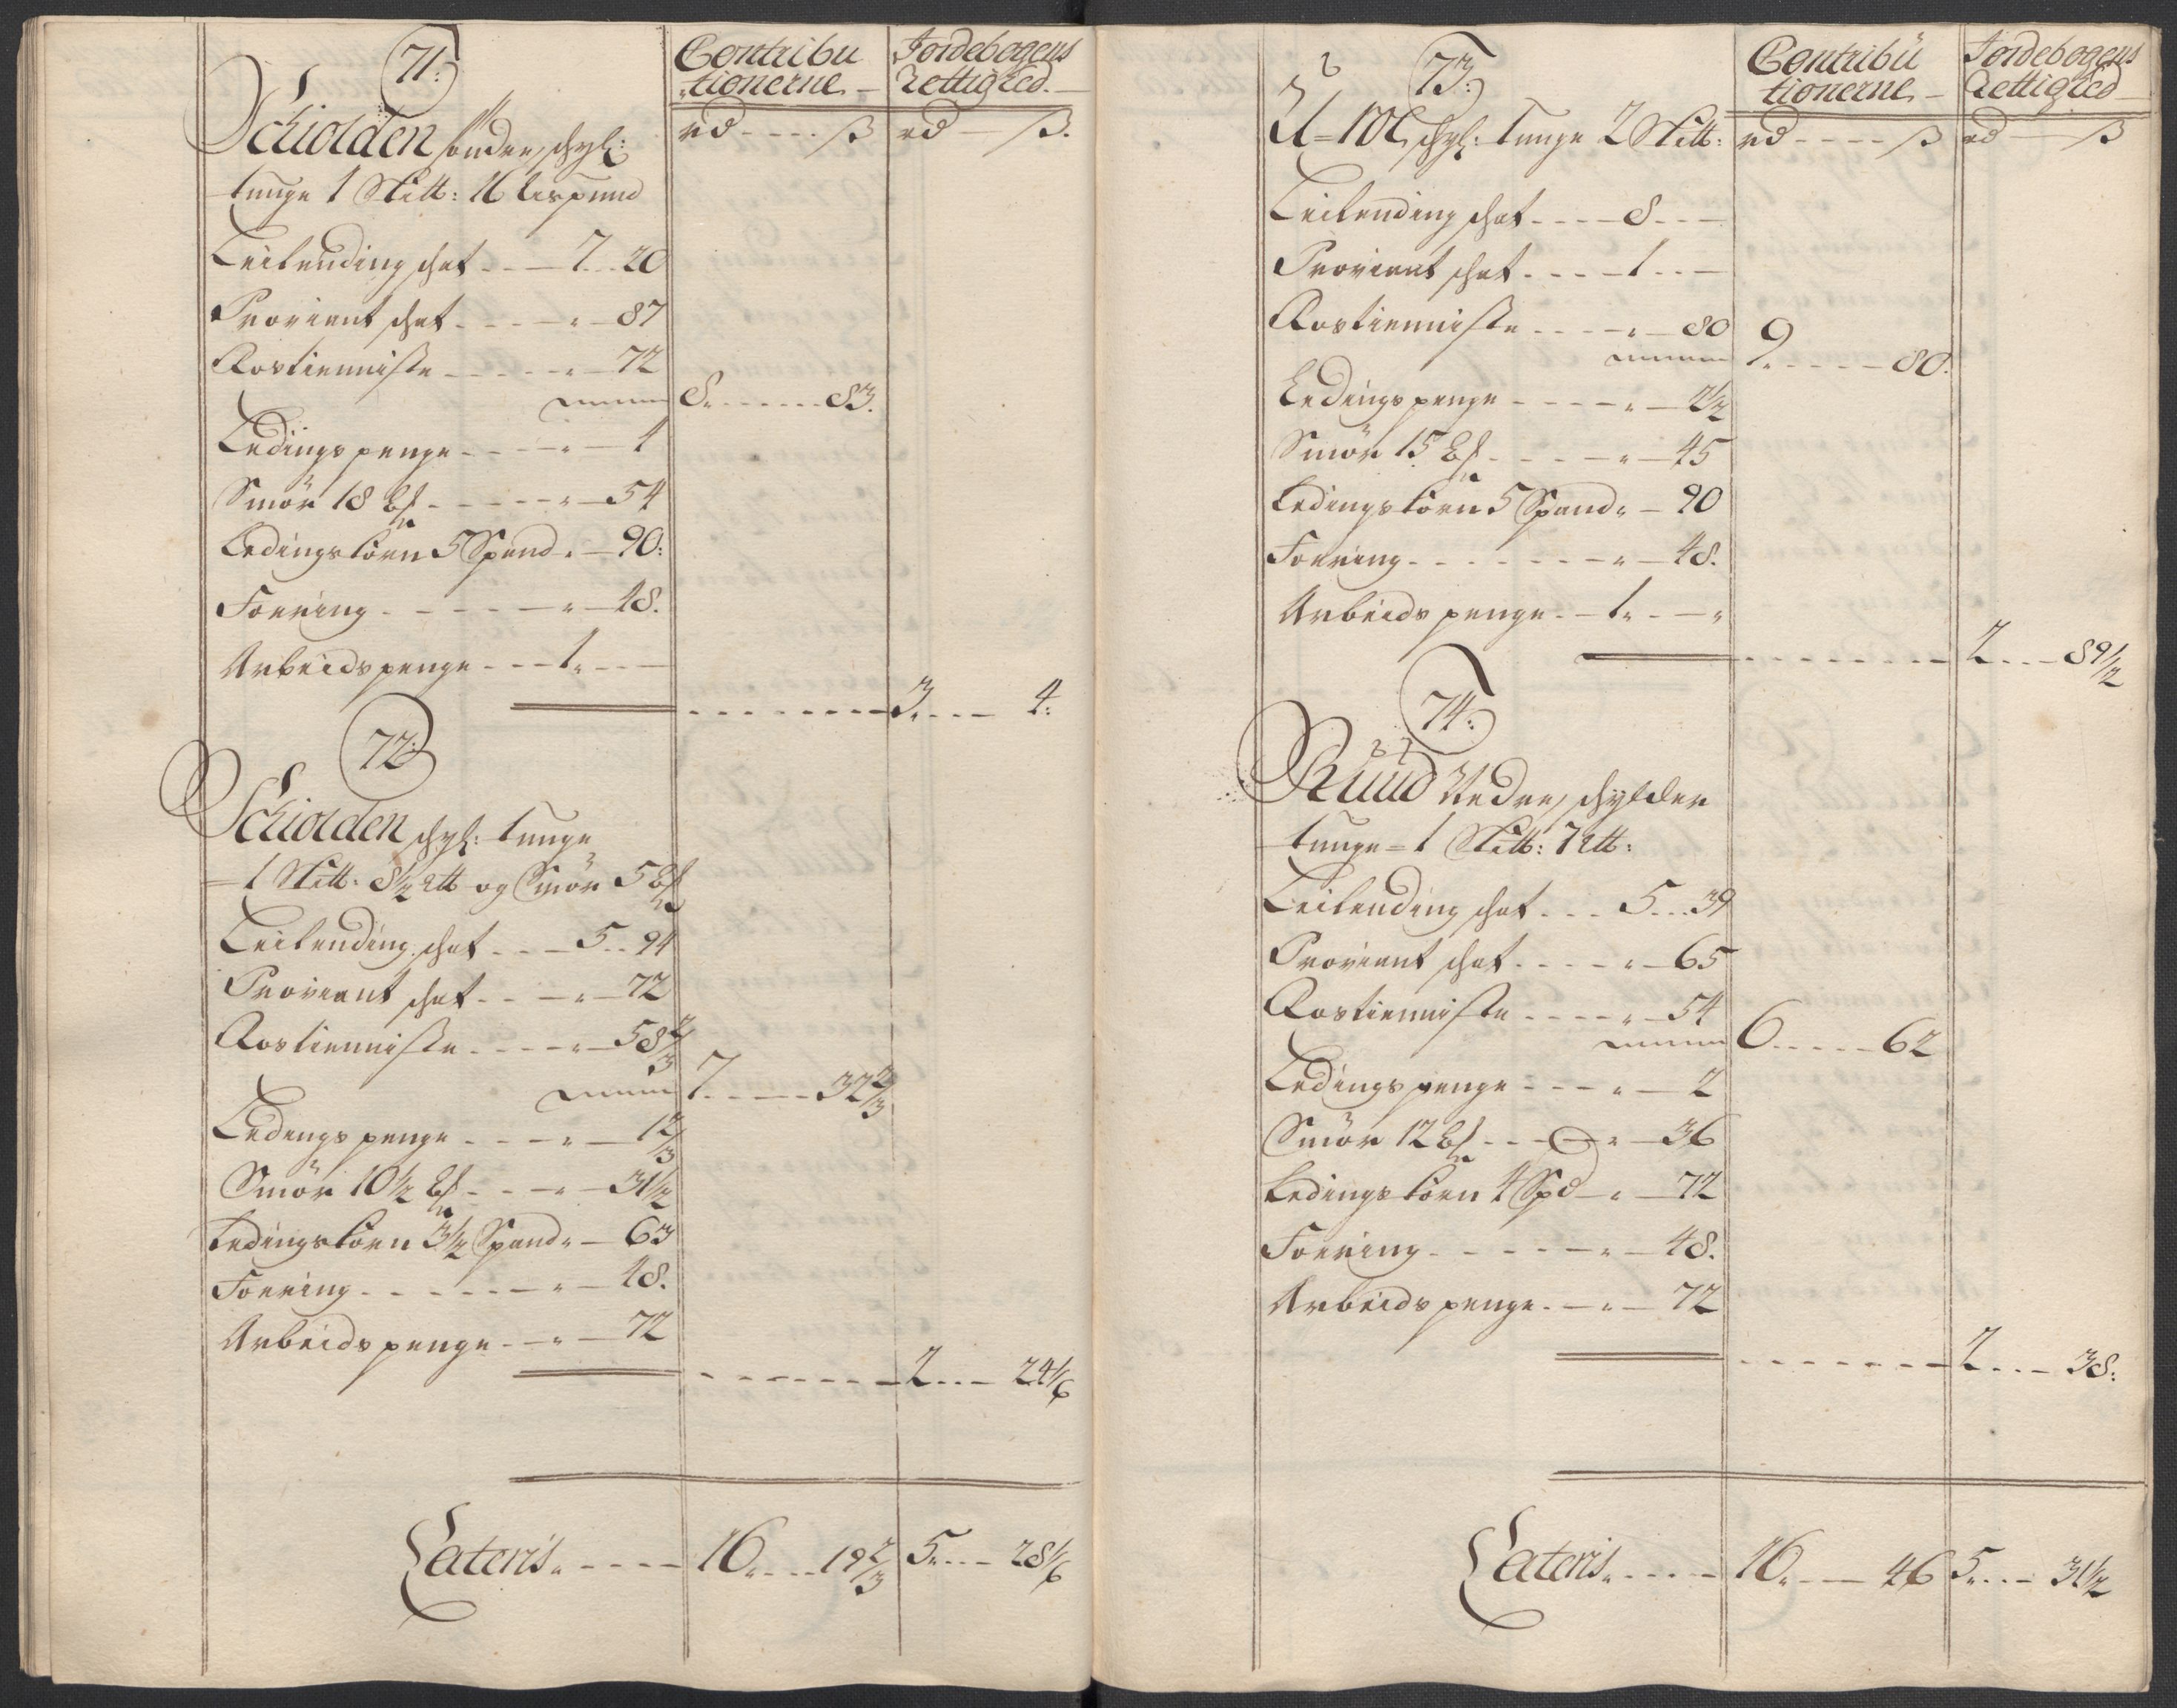 71:
Contribu
tionerne
Jordebogens
Rettighed
Schiolden söndre, schyl:
rd ß rd ß
tunge 1 Skill: 16 Lispund
Leilending schat 7 20
Proviant schat 87
Rostienniste 72
8 83.
Ledings penge 1
Smör 18 54
Ledingskorn 5 Spand 90:
Foering 48.
Arbeids penge 1
3 4:
72:
Schiolden schyl: tunge
1 Skill: 8½ og Smör 5
Leilending schat 5 94
Proviant schat 72
Rostienniste 58 2/3
7 37 2/3
Ledings penge 1 2/3
Smör 10½ 31½
Ledingskorn 3½ Spand 63
Foering 48.
Arbeids penge 72
2 24 1/6
Lateris 16 19 2/3 5 28 1/6
73:
Contribü
tionerne
Jordebogens
Rettighed
schyl: tunge 2 Skill: rd ß rd ß
Leilending schat 8
Proviant schat 1
Rostienniste 80
9 80.
Ledings penge 2½
Smör 15 45
Ledingskorn 5 Spand 90
Foering 48.
Arbeids penge 1
2 89½
74:
Ruud Nedre, schylder
tunge 1 Skill: 7
Leilending schat 5 39
Proviant schat 65
Rostienniste 54
6 62
Ledings penge 2
Smör 12 36
Ledings korn 4 Spd 72
Foering 48.
Arbeids penge 72
2 38:
Lateris 16 46 5 31½